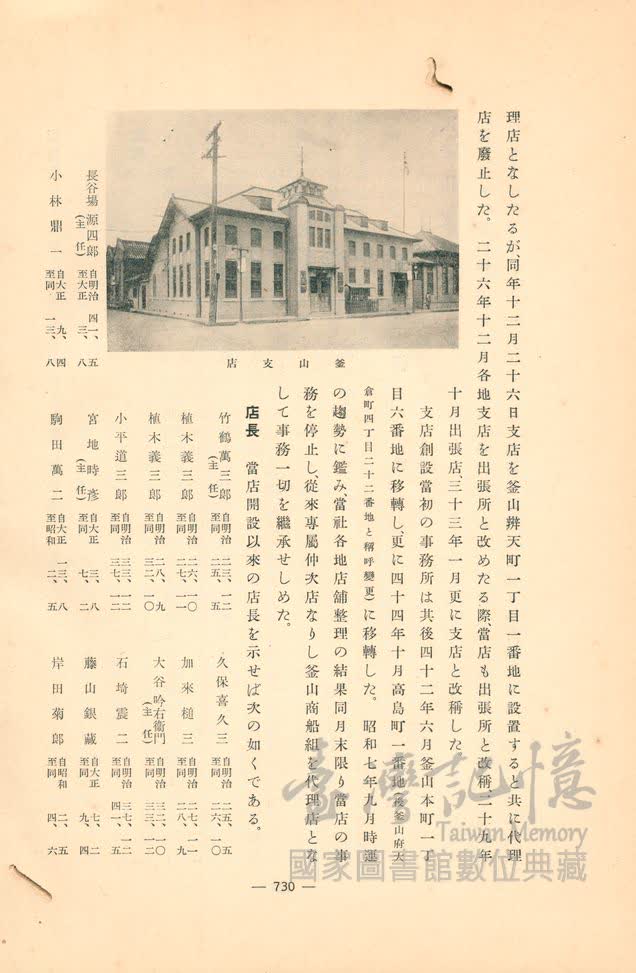 理店となしたるが、同年十二月二十六日支店を釜山辨天町一丁目一番地に設置すると共に代理
店を廢止した。二十六年十二月各地支店を出張所と改めたる際、當店も出張所と改稱し、二十九年
十月出張店、三十三年一月更に支店と改稱した。
支店創設當初の事務所は其後四十二年六月釜山本町一丁
目六番地に移轉し、更に四十四年十月高島町一番地(後釜山府大
倉町四丁目二十二番地と稱呼變更)に移轉した。昭和七年九月時運
の趨勢に鑑み、當社各地店舖整理の結果同月末限り當店の事
務を停止し、從來專屬仲次店なりし釜山商船組を代理店とな
して事務一切を繼承せしめた。
店長 當店開設以來の店長を示せば次の如くである。
釜山支店
竹鶴萬三郎(主任) 自明治二三、一二 至同二五、五
久保喜久三 自明治二五、五 至同二六、一〇
植木義三郎 自明治二六、一〇 至同二七、一一
加來槌三 自明治二七、一一 至同二八、九
植木義三郎 自明治二八、九 至同三二、一〇
大谷吟右衞門(主任) 自明治三二、一〇 至同三三、一二
小平道三郎 自明治三三、一二 至同三七、一二
石埼震二 自明治三七、一二 至同四一、五
長谷場源四郎(主任) 自明治四一、五 至大正三、八
宮地時彥(主任) 自大正三、八 至同七、二
藤山銀藏 自大正七、二 至同九、四
小林鼎一 自大正九、四 至同一三、八
駒田萬二 自大正一三、八 至昭和二、五
岸田菊郎 自昭和二、五 至同四、六
— 730 —
臺灣記憶
Taiwan Memory
國家圖書館數位典藏